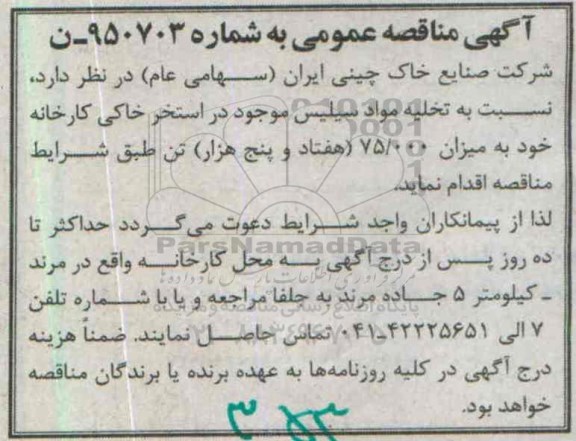 آگهی مناقصه عمومی به شماره ۹۵۰۷۰۳-ن
شرکت صنایع خاک چینی ایران (سهامی عام) در نظر دارد،
نسبت به تخلیه مواد سیلیس موجود در استخر خاکی کارخانه
خود به میزان ۷۵/۰۰۰ (هفتاد و پنج هزار) تن طبق شرایط
مناقصه اقدام نماید.
لذا از پیمانکاران واجد شرایط دعوت می‌گردد حداکثر تا
ده روز پس از درج آگهی به محل کارخانه واقع در مرند
- کیلومتر ۵ جاده مرند به جلفا مراجعه و یا با شماره تلفن
۷ الی ۴۲۲۲۵۶۵۱-۰۴۱ تماس حاصل نمایند. ضمناً هزینه
درج آگهی در کلیه روزنامه‌ها به عهده برنده یا برندگان مناقصه
خواهد بود.
ParsNamadData